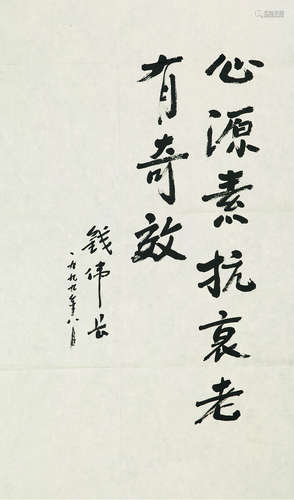 心源素抗衰老
有奇效
钱伟长
一九九九年八月